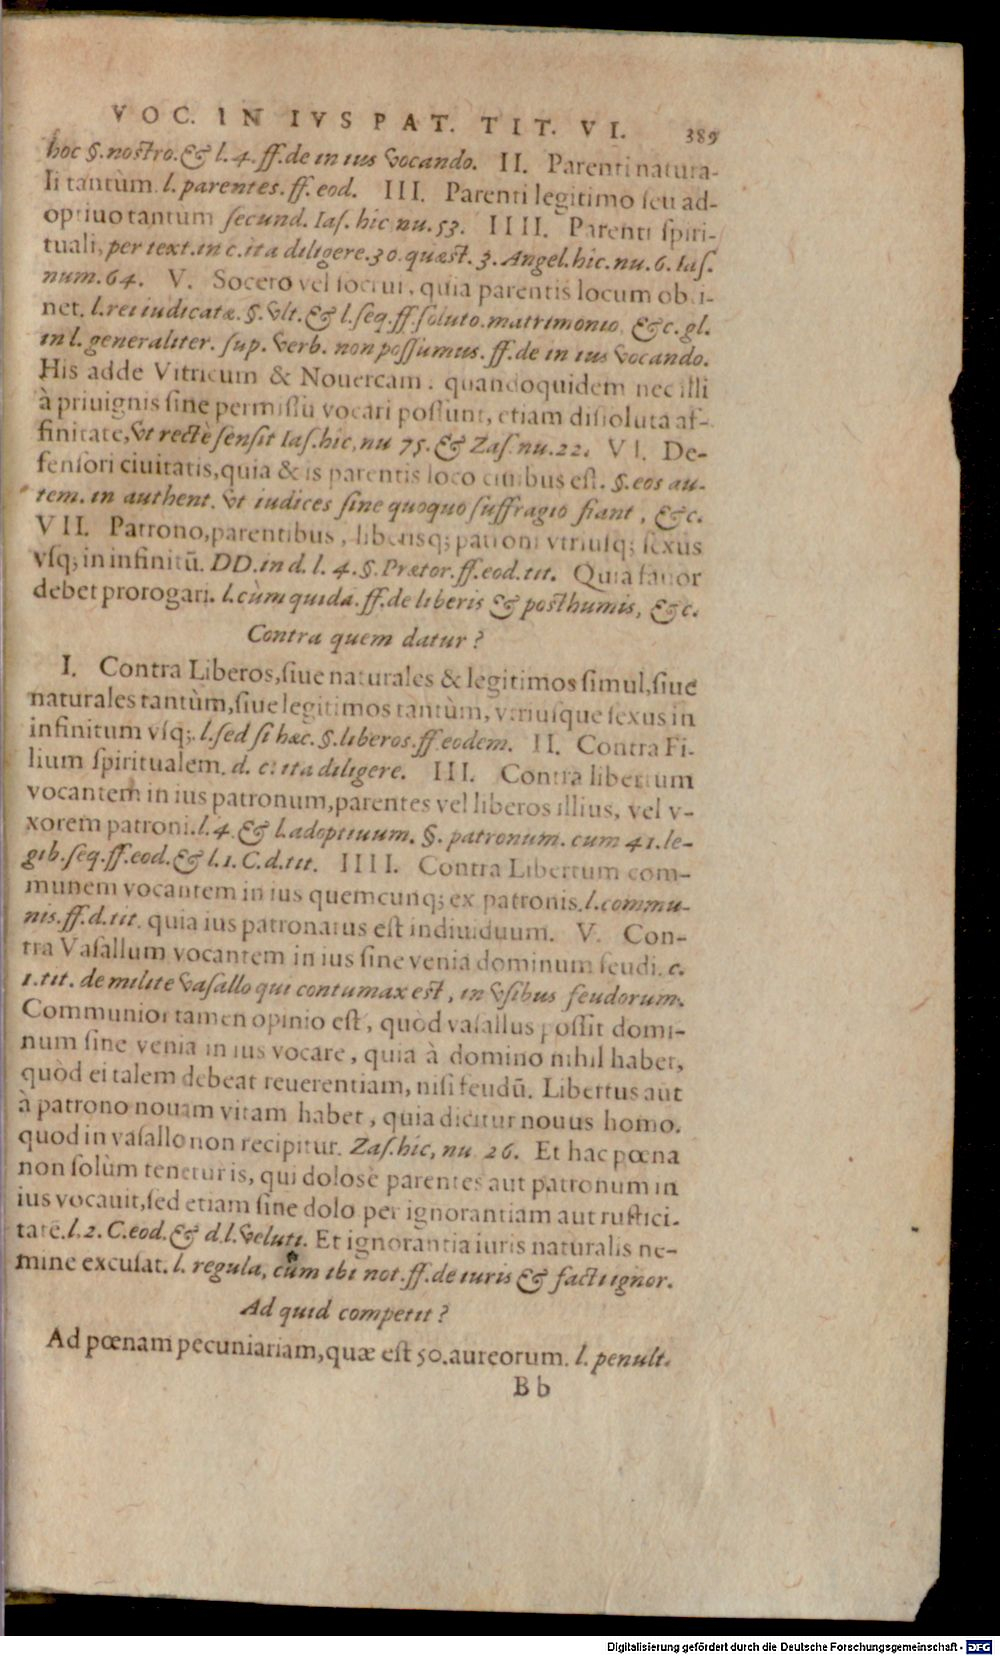 VOC. IN IVS PAT. TIT. VI. 389
hoc §. nostro. & l. 4. ff. de in ius vocando. II. Parenti natura-
li tantùm. l. parentes. ff. eod. III. Parenti legitimo seu ad-
optiuo tantum secund. Ias. hic nu. 53. IIII. Parenti spiri-
tuali, per text. in c. ita diligere. 30. quæst. 3. Angel. hic. nu. 6. Ias.
num. 64. V. Socero vel socrui, quia parentis locum obti-
net. l. rei iudicatæ. §. vlt. & l. seq. ff. soluto. matrimonio, &c. gl.
in l. generaliter. sup. verb. non possumus. ff. de in ius vocando.
His adde Vitricum & Nouercam. quandoquidem nec illi
à priuignis sine permissu vocari possunt, etiam dissoluta af-
finitate, vt rectè sensit Ias. hic, nu 75. & Zas. nu. 22. VI. De-
fensori ciuitatis, quia & is parentis loco ciuibus est. §. eos au-
tem. in authent. vt iudices sine quoquo suffragio fiant, &c.
VII. Patrono, parentibus, liberisq; patroni vtriusq; sexus
vsq; in infinitū. DD. in d. l. 4. §. Prætor. ff. eod. tit. Quia fauor
debet prorogari. l. cùm quidā. ff. de liberis & posthumis, &c.
Contra quem datur?
I. Contra Liberos, siue naturales & legitimos simul, siue
naturales tantùm, siue legitimos tantùm, vtriusque sexus in
infinitum vsq;. l. sed si hæc. §. liberos. ff. eodem. II. Contra Fi-
lium spiritualem. d. c. ita diligere. III. Contra libertum
vocantem in ius patronum, parentes vel liberos illius, vel v-
xorem patroni. l. 4. & l. adoptiuum. §. patronum. cum 41. le-
gib. seq. ff. eod. & l. 1. C. d. tit. IIII. Contra Libertum com-
munem vocantem in ius quemcunq; ex patronis. l. commu-
nis. ff. d. tit. quia ius patronatus est indiuiduum. V. Con-
tra Vasallum vocantem in ius sine venia dominum feudi. c.
1. tit. de milite vasallo qui contumax est, in vsibus feudorum.
Communior tamen opinio est, quòd vasallus possit domi-
num sine venia in ius vocare, quia à domino nihil habet,
quòd ei talem debeat reuerentiam, nisi feudū. Libertus aut
à patrono nouam vitam habet, quia dicitur nouus homo.
quod in vasallo non recipitur. Zas. hic, nu 26. Et hac pœna
non solùm tenetur is, qui dolosè parentes aut patronum in
ius vocauit, sed etiam sine dolo per ignorantiam aut rustici-
tatē. l. 2. C. eod. & d. l. veluti. Et ignorantia iuris naturalis ne-
mine excusat. l. regula, cùm ibi not. ff. de iuris & facti ignor.
Ad quid competit?
Ad pœnam pecuniariam, quæ est 50. aureorum. l. penult.
Bb
Digitalisierung gefördert durch die Deutsche Forschungsgemeinschaft - DFG